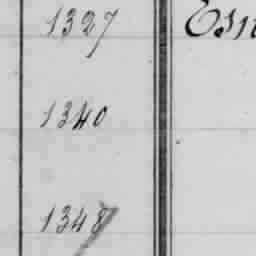 1327
1340
1348